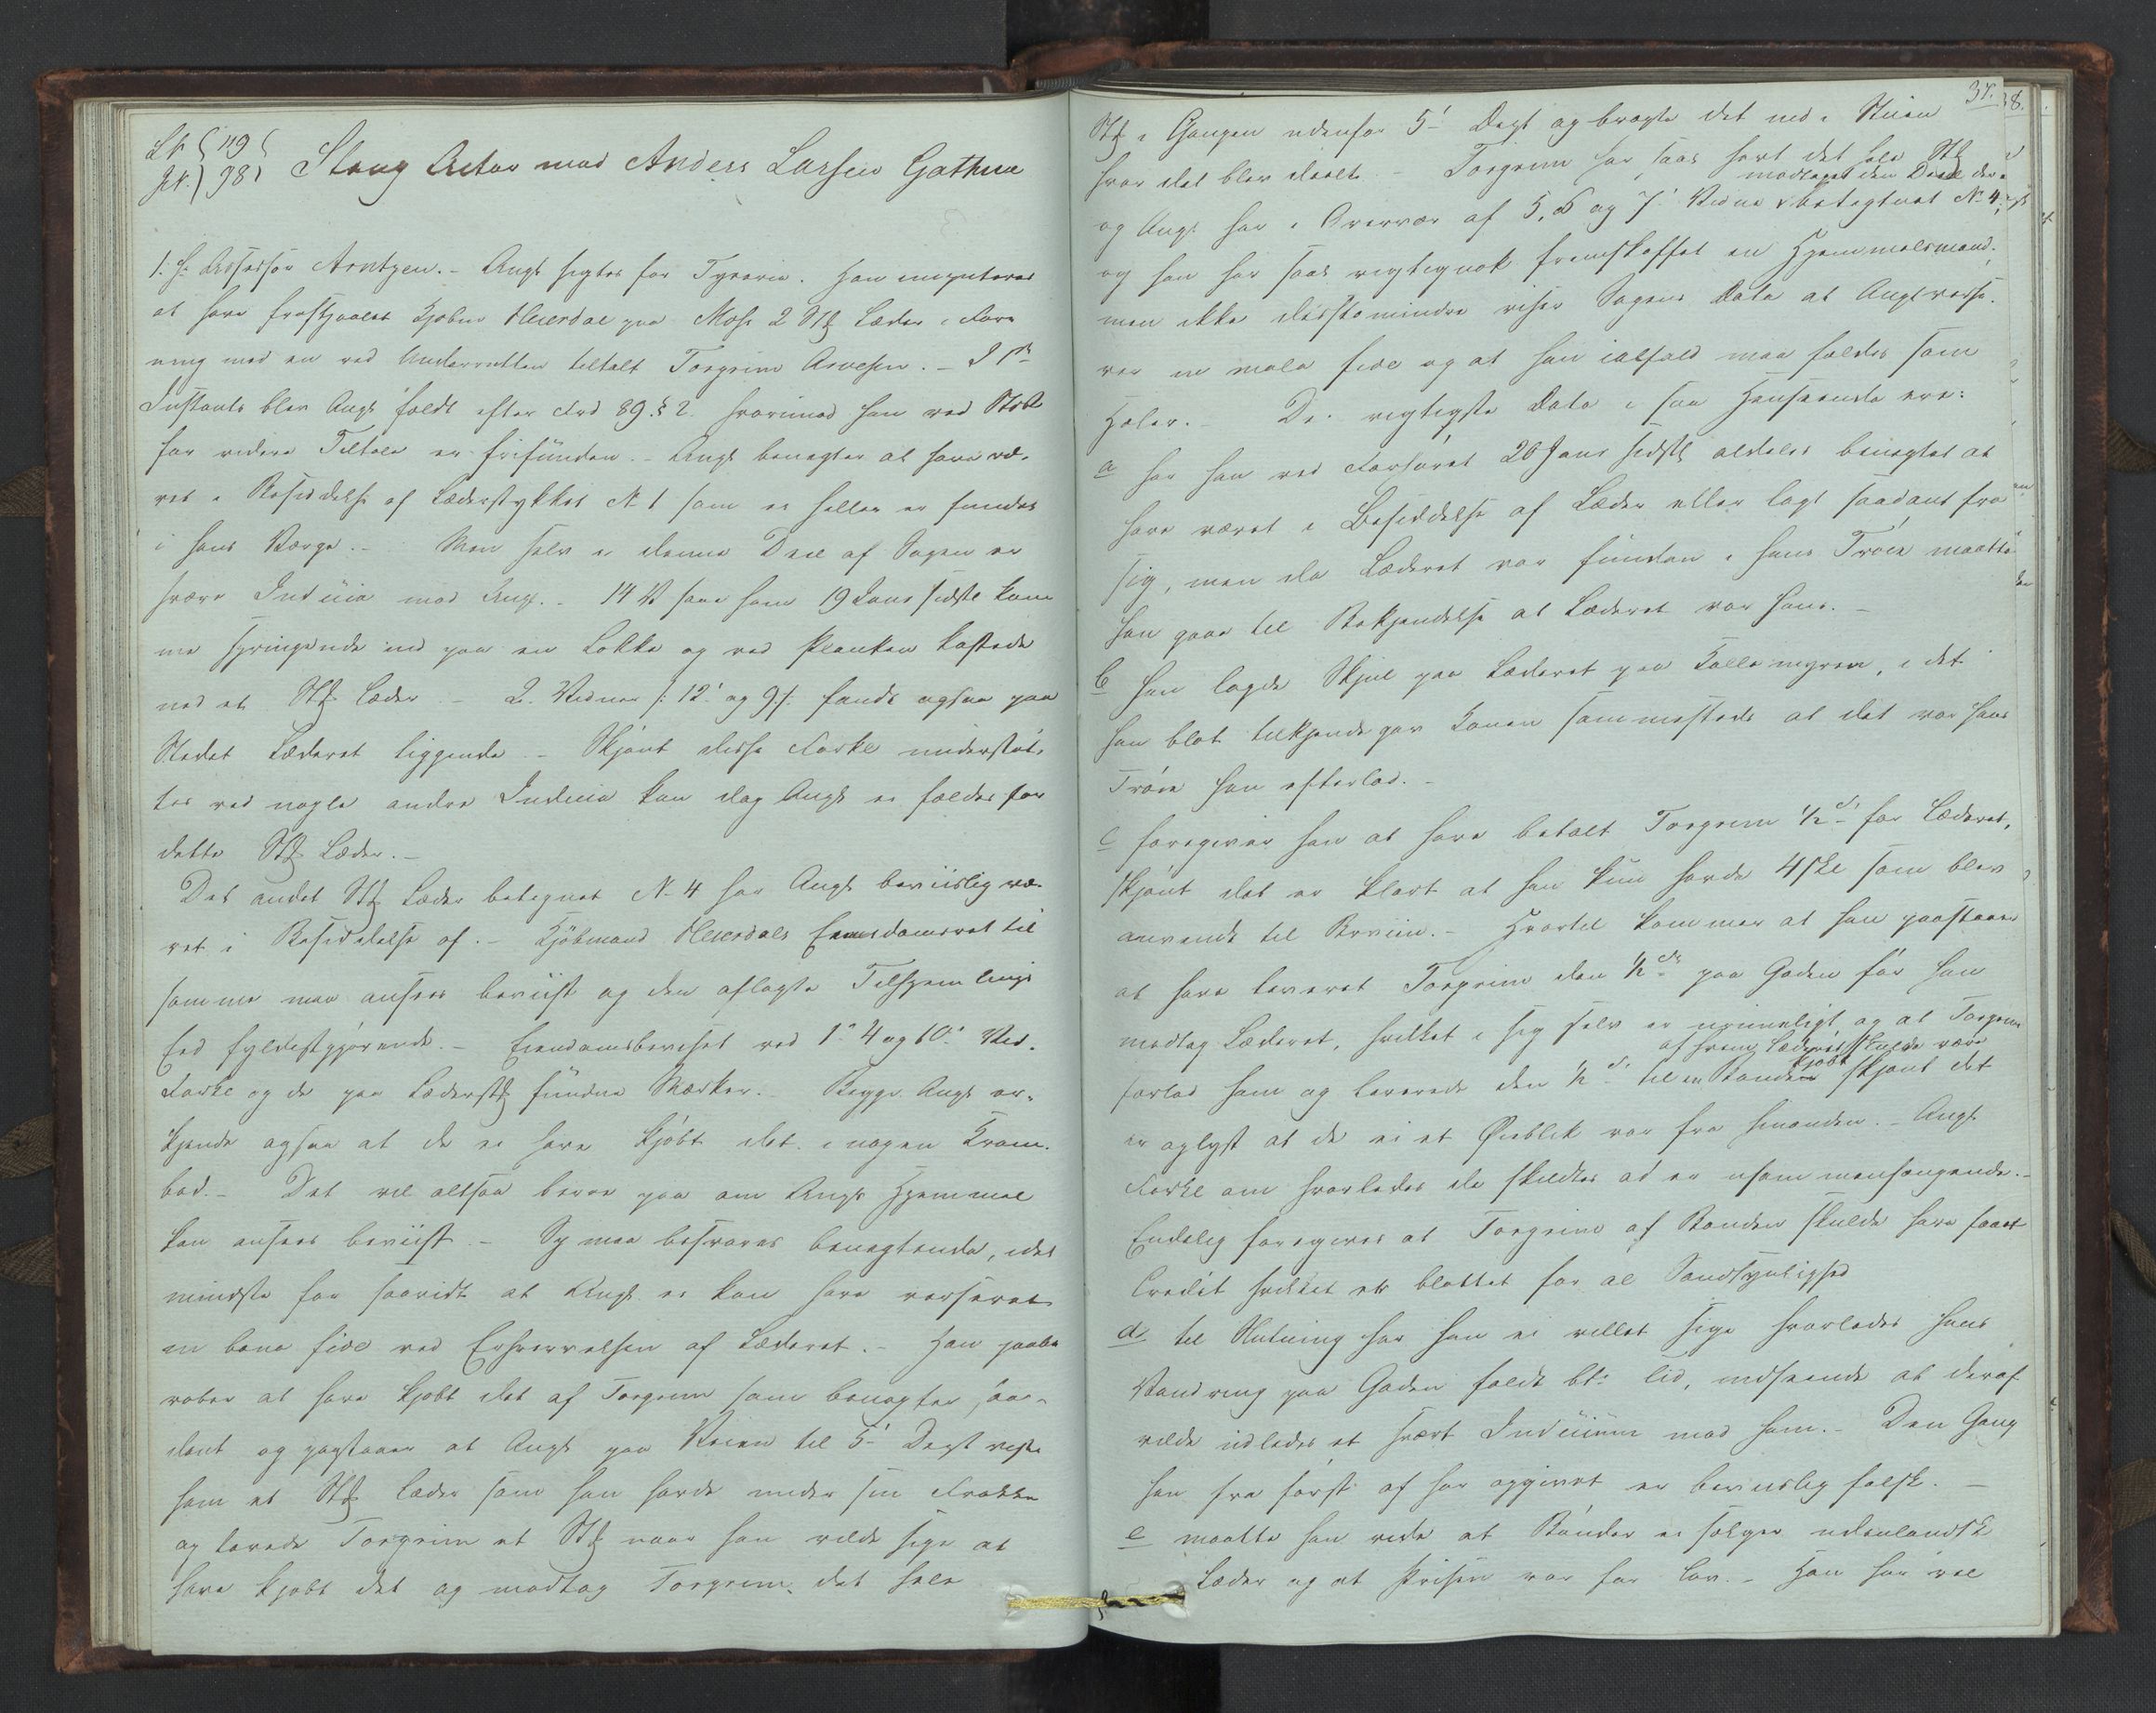 L N { 119 {
J N. } 98 } Stang Actor mod Anders Larsen Gathue
1. H: Assessor Arntzen. - Angk sigtes for Tyverie. Han imputeres
at have frastjaalet Kjøbm Heierdal paa Moss 2 Stk Læder i Fore
ning med en ved Underretten tiltalt Torgrim Arvesen. - I 1ste
Instants blev Angk fældt efter Frd 89. § 2. hvorimod han ved StOR
for videre Tiltale er frifunden. - Angk benegter at have væ-
ret i Besiddelse af Læderstykket N 1 som ei heller er fundet
i hans Værge. - Men selv i denne Deel af Sagen er
svære Indicia mod Angk. - 14 V saae ham 19 Janr sidstl kom
me springende ind paa en Løkke og ved Planken kastede
ned et Stk Læder - 2. Vidner /: 12' og 9 :/ fandt ogsaa paa
Stedet Læderet liggende. - Skjønt disse Forkl understøt-
tes ved nogle andre Indicia kan dog Angk ei fældes for
dette Stk Læder. -
Det andet Stk Læder betegnet N. 4 har Angk beviislig væ-
ret i Besiddelse af. - Kjøbmand Heierdals Eiendomsret til
samme maa ansees beviist og den aflagte Tilhjemlings
Eed fyldestgjørende. - Eiendomsbeviset ved 1' 4 og 10' Vid.
Forkl og de paa Læderstk fundne Mærker. - Begge Angk er-
kjende ogsaa at de ei have kjøbt det i nogen Kram-
bod. - Det vil altsaa beroe paa om Angk Hjemmel
kan ansees beviist. - Sp maa besvares benegtende, idet
mindste for saavidt at Angk ei kan have verseret
in bona fide ved Erhvervelsen af Læderet. - Han paabe
raaber at have kjøbt det af Torgrim som benegter saa-
dant og paastaaer at Angk paa Veien til 5' Dept viste
ham et Stk Læder som han havde under sin Frakke
og lovede Torgrim et Stk naar han vilde sige at
have kjøbt det og modtog Torgrim det hele
37. 38.
Stk i Gangen udenfor 5' Dept og bragte det ind i Stuen
hvor det blev deelt. - Torgrim har saaes havt det hele Stk
modtaget den Deel der e
og Angk har i Overvær af 5, 6 og 7' Vidne betegnet N. 4
og han har saaes rigtignok fremskaffet en Hjemmelsmand;
men ikke desstomindre viser Sagens Data at Angk verse-
rer in mala fide og at han ialfald maa fældes som
Hæler. - De vigtigste Data i saa Henseende ere:
a har han ved Forhøret 20 Janr sidstl aldeles benegtet at
have været i Besiddelse af Læder eller lagt saadant fra
sig, men da Læderet var funden i hans Trøie maatte
han gaae til Bekjendelse at Læderet var hans. -
b han lagde Skjul paa Læderet paa Kallemyren, i det
han blot tilkjendegav Konen sammesteds at det var hans
Trøie han efterlod. -
c foregiver han at have betalt Torgrim ½ d' for Læderet,
skjønt det er klart at han kun havde 4 ske som blev
anvendt til Beviin. - Hvortil kommer at han paastaaer
at have leveret Torgrim den ½ dr paa Gaden før han
modtog Læderet, hvilket i sig selv er urimeligt, og at Torgrim
af hvem Læderet skulde være
kjøbt
forlod ham og leverede den ½ d' til en Bonde skjønt det
er oplyst at de ei et Øieblik var fra hinanden. - Angk
Forkl om hvorledes de skildtes ad er usammenhængende. -
Endelig foregives at Torgrim af Bonden skulde have faaet
Credit hvilket er blottet for al Sandsynlighed
d til Slutning har han ei villet sige hvorledes hans
Vandring paa Gaden faldt bte Tid, indseende at deraf
vilde udledes et svært Indicium mod ham. - Den Gang
han fra først af har opgivet er beviislig falsk. -
e maatte han vide at Bønder ei sælger udenlandsk
Læder og at Prisen var for lav. - Han har vel